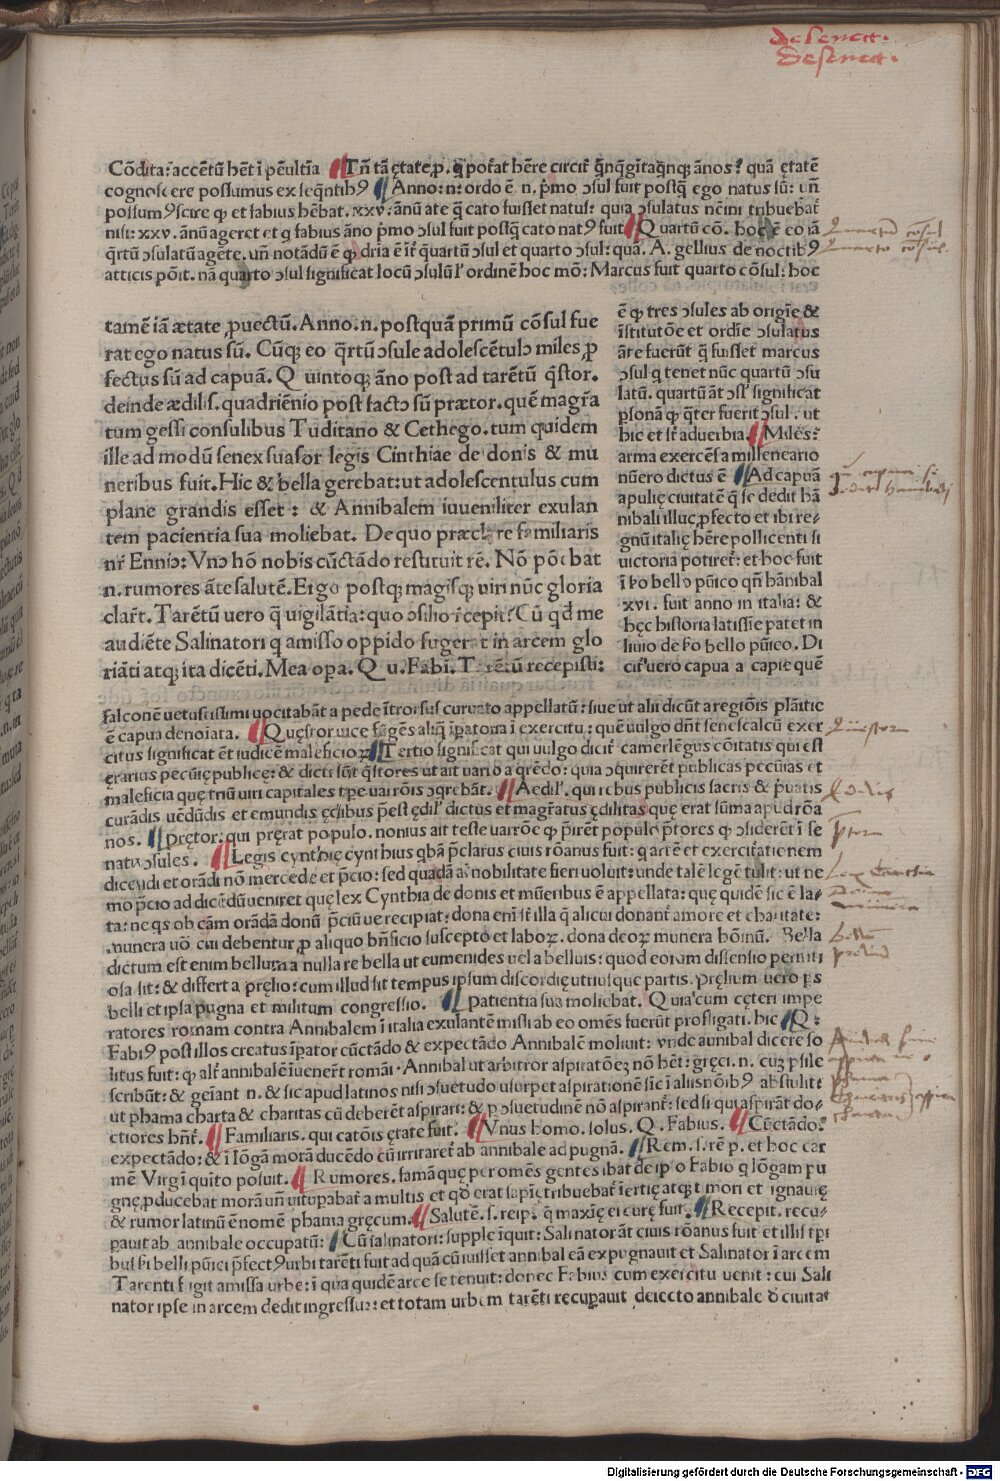 de senect.
De senect.
Cōdita: accētū hēt ī pēultīa Tñ tā ętate ꝓ. q̃ potat̃ hẽre circit̃ q̃nq̃gīta q̃nqꝫ ãnos? quã ętatē
cognoscere possumus ex seq̃ntibꝰ Anno: n: ordo ē. n. p̃mo ↄsul fuit postq̃ ego natus sū: uñ
possum ꝰscire ꝙ et fabius hēbat. xxv: ānū āte q̃ cato fuisset natus: quia ↄsulatus nēini tribuebat̃
nisi: xxv. ānū ageret et q fabius āno p̃mo ↄsul fuit postq̃ cato natꝰ fuit Quartū cō. hoc ē eo iā
q̃rtū ↄsulatū agēte. uñ notādū ē ꝙ dr̃ia ē īt̃ q̃rtū ↄsul et quarto ↄsul: quā. A. gellius de noctibꝰ
atticis pōit. nā quarto ↄsul significat locū ↄsulū l̓ ordinē hoc mō: Marcus fuit quarto cōsul: hoc
tamē iā ætate ꝓuectū. Anno. n. postquā primū cōsul fue
rat ego natus sū. Cūqꝫ eo q̃rtū ↄsule adolescētulↄ miles ꝓ
fectus sū ad capuā. Quintoqꝫ āno post ad tarētū q̃stor.
deinde ædilis. quadriēnio post factↄ sū prætor. quē magr̃a
tum gessi consulibus Tuditano & Cethego. tum quidem
ille ad modū senex suasor legis Cinthiae de donis & mu
neribus fuit. Hic & bella gerebat: ut adolescentulus cum
plane grandis esset: & Annibalem iuueniliter exulan
tem pacientia sua moliebat. De quo præclare familiaris
nr̃ Enniↄ: Vnↄ hō nobis cūctādo restituit rē. Nō pōebat
n. rumores āte salutē. Ergo postqꝫ magisqꝫ uiri nūc gloria
claret̃. Tarētū uero q̃ uigilātia: quo ↄsilio recepit? Cū qd̃ me
audiēte Salinatori q amisso oppido fugerat in arcem glo
riāti atqꝫ ita dicēti. Mea opa. Qu. Fabi. Tarētū recepisti:
ē ꝙ tres ↄsules ab origīe &
īstitutōe et ordīe ↄsulatus
āte fuerūt q̃ fuisset marcus
ↄsul q tenet nūc quartū ↄsu
latū. quartū āt ↄsl̓ significat
p̱sonā ꝙ q̃ter fuerit ↄsul. ut
hic et st̃ aduerbia Miles:
arma exercēs a millenario
nūero dictus ē Ad capuā
apulię ciuitatē q̃ se dedit hā
nibali illuc ꝓfecto et ibi re-
gnū italię hẽre pollicenti si
uictoria potiret̃: et hoc fuit
ī ẞo bello pūico qñ hānibal
xvi. fuit anno in italia: &
hęc historia latissīe patet in
liuio de ẞo bello pūico. Di
cit̃ uero capua a capie quē
falconē uetustissimi uocitabāt a pede ītrorsus curuato appellatū: siue ut alii dicūt a regiōis plāitie
ē capua denoīata. Quęstor uice fūgēs aliq̃ īpatoria ī exercitu: quē uulgo dn̄t senescalcū exer
citus significat ēt iudicē maleficioꝝ Tertio significat qui uulgo dicit̃ camerlēgus cōitatis qui est
ęrarius pecūię publicę: & dicti sūt q̃stores ut ait uarro a q̃rēdo: quia ↄquirerēt publicas pecūias et
maleficia quę triū uiri capitales tp̃e uarrōis ↄq̃rebāt. Aedil̓. qui rebus publicis sacris & p̃uatis
curādis uēdūdis et emundis ędibus p̃est ędil̓ dictus et magr̃atus ędilitas quę erat sūma apud rōa
nos. Prętor: qui pręrat populo. nonius ait teste uarrōe ꝙ p̃irēt populo p̃tores ꝙ ↄsiderēt ī se
natu ↄsules. Legis cynthię cynthius qbā p̃clarus ciuis rōanus fuit: q artē et exercitationem
dicendi et orādi nō mercede et p̃cio: sed quadā aī nobilitate fieri uoluit: unde talē legē tulit: ut ne
mo p̃cio ad dicēdū ueniret que lex Cynthia de donis et mūeribus ē appellata: que quidē sic ē la-
ta: ne qs ob cām orādā donū p̃ciū ue recipiat: dona enī st̃ illa q̃ alicui donant̃ amore et charitate:
munera uō cui debentur ꝓ aliquo bn̄ficio suscepto et laboꝝ. dona deoꝝ munera hōīnū. Bella
dictum est enim bellum a nulla re bella ut eumenides uel a belluis: quod eorum dissensio perniti
osa sit: & differt a pręlio: cum illud sit tempus ipsum discordię utriusque partis. pręlium uero p̱s
belli et ipsa pugna et militum congressio. patientia sua moliebat. Quia cum cęteri impe
ratores romam contra Annibalem ī italia exulantē missi ab eo omēs fuerūt profligati. hic Q:
Fabiꝰ post illos creatus īpator cūctādo & expectādo Annibalē moliuit: vnde annibal dicere so
litus fuit: ꝙ alt̃ annibalē iuenert̃ romāi. Annibal ut arbitror aspiratōeꝫ nō hēt: gręci. n. cuꝫ psile
scribūt: & geīant n. & sic apud latinos nisi ↄsuetudo usurpet aspirationē sic ī aliis nōibꝰ abstulit:
ut phama charta & charitas cū deberēt aspirari: & ꝓ ↄsuetudinē nō aspirant̃: sed si qui aspirāt do-
ctiores hn̄t̃. Familiaris. qui catōis ętate fuit. Vnus homo. solus. Q. Fabius. Cūctādo:
expectādo: & ī lōgā morā ducēdo cū irritaret̃ ab annibale ad pugnā. Rem. s. rē p. et hoc car
mē Virgī quīto posuit. Rumores. famā quę per omēs gentes ibat de ip̃o Fabio q lōgam pu
gnę ꝓducebat morā uñ uitupabat̃ a multis et qd̃ erat sapīę tribuebat̃ īertię atqꝫ timori et ignauię
& rumor latinū ē nomē phama gręcum. Salutē. s. reip. q̃ maxīe ei curę fuit. Recepit. recu-
pauit ab annibale occupatū: Cū salinatori: supple īquit: Salinator āt ciuis rōanus fuit et illis tp̃i
bus ẞi belli pūici p̃fectꝰ urbi tarēti fuit ad quā cū iuisset annibal eā expugnauit et Salinator ī arcem
Tarenti fugit amissa urbe: ī qua quidē arce se tenuit: donec Fabius cum exercitu uenit: cui Sali
nator ipse in arcem dedit ingressuꝫ: et totam urbem tarēti recuꝑauit deiecto annibale d̓ ciuitat̃
Quartū cōsul
Quarto cōsul.
Questor
Edilis
Pretor
Lex Cinthia
Dona
Munera
Bellū
Prelium
phama
Charitas
Charta
Digitalisierung gefördert durch die Deutsche Forschungsgemeinschaft - DFG